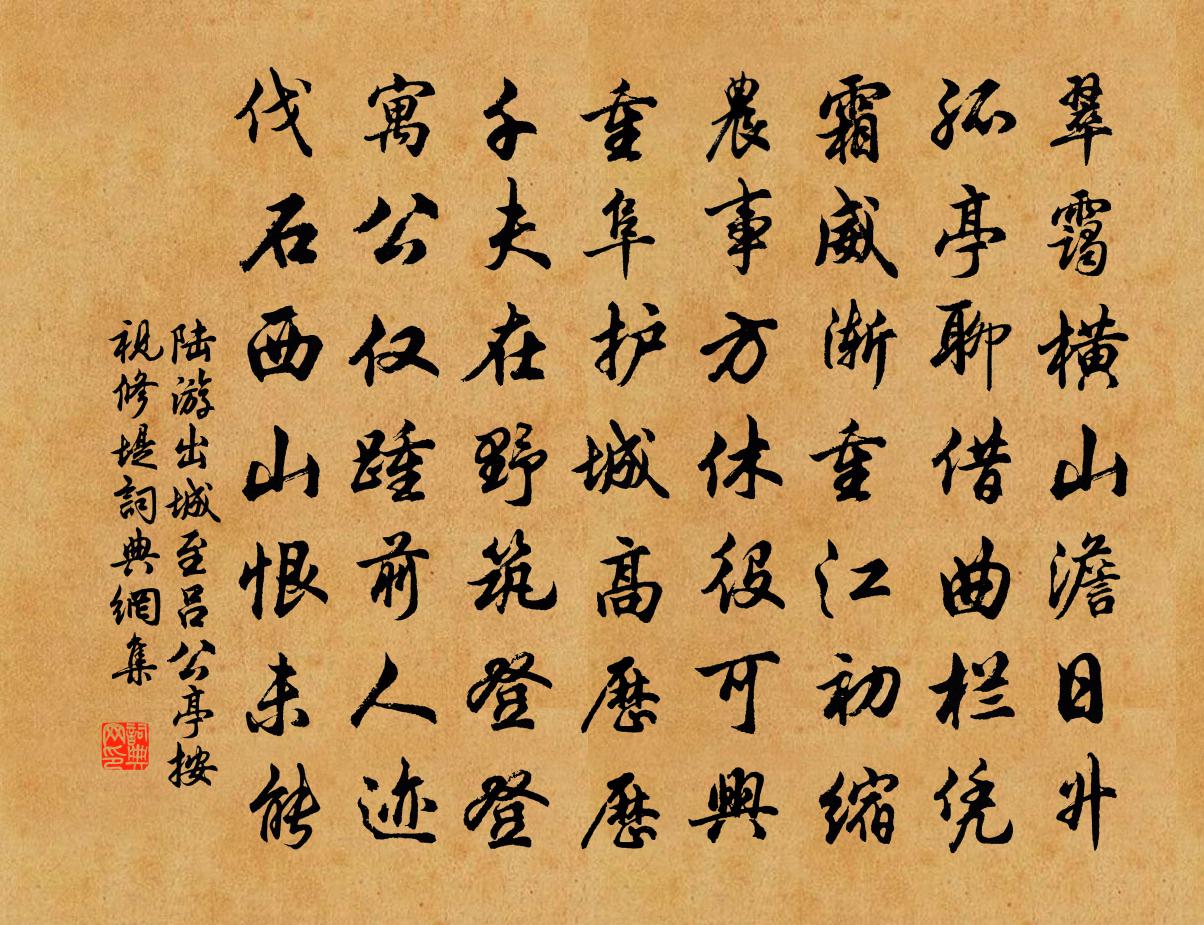 翠霭横山澹日升
孤亭聊借曲栏凭
霜威渐重江初缩
農事方休役可興
重阜护城高歷歷
千夫在野筑登登
寓公仅踵前人迹
伐石西山恨未能
陆游出城至吕公亭按
视修堤詞典網集
詞典網印